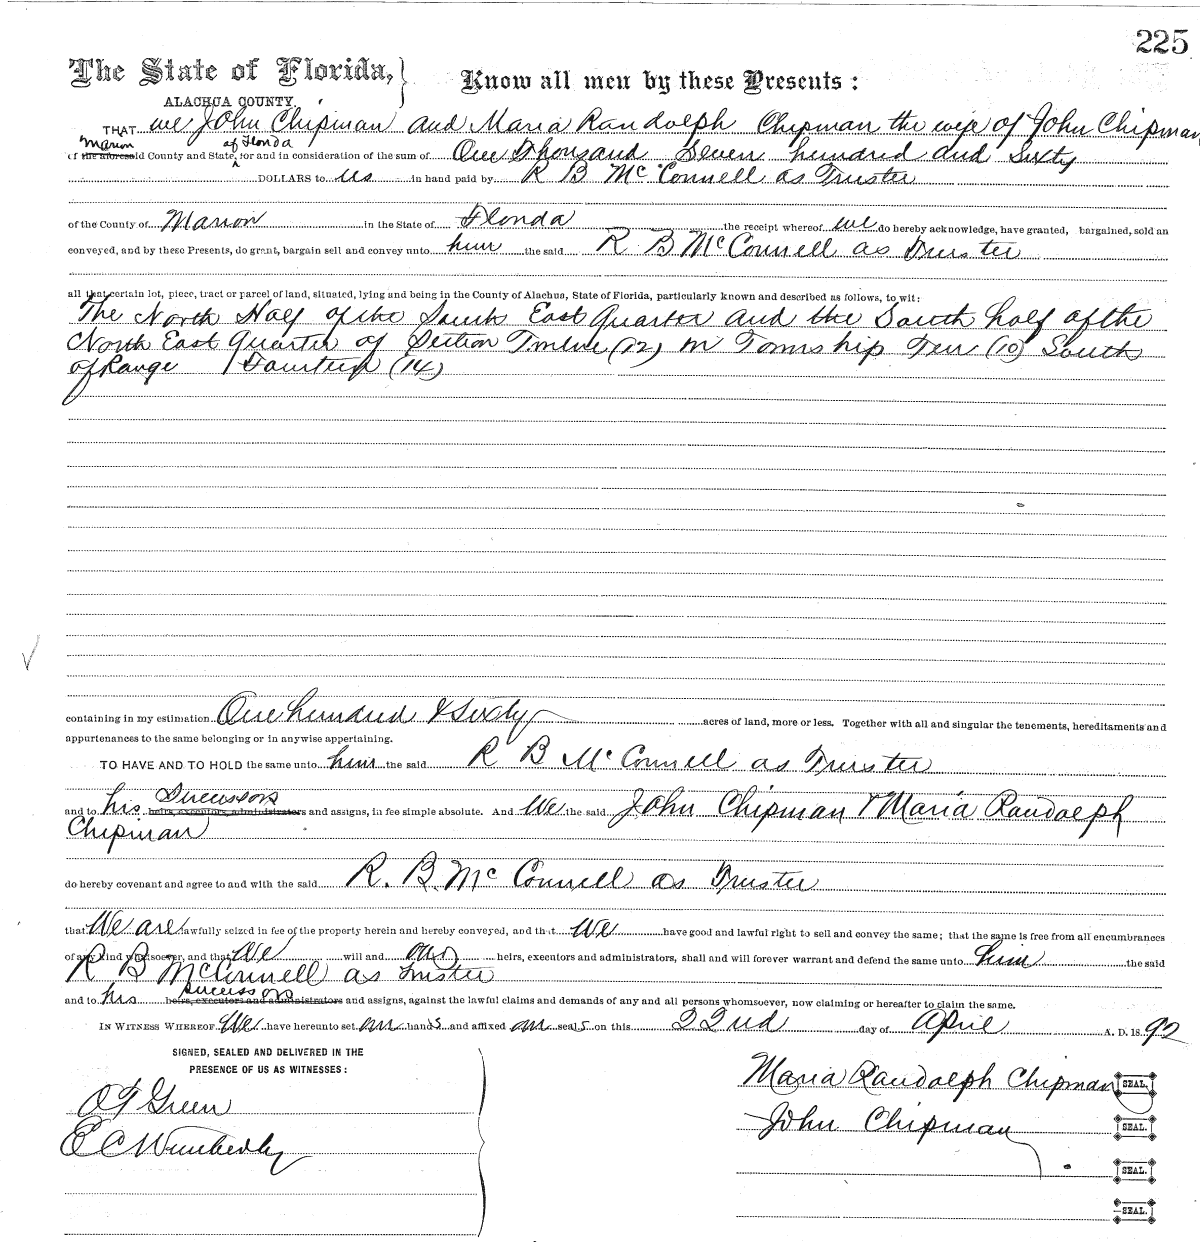 225
The State of Florida,
ALACHUA COUNTY.
Know all men by these Presents:
THAT we John Chipman and Maria Randolph Chipman the wife of John Chipman
Marion of Florida
of the aforesaid County and State, for and in consideration of the sum of One Thousand Seven hundred and Sixty
DOLLARS to us in hand paid by R B McConnell as Trustee
of the County of Marion in the State of Florida the receipt whereof we do hereby acknowledge, have granted, bargained, sold an
conveyed, and by these Presents, do grant, bargain sell and convey unto him the said R B McConnell as Trustee
all that certain lot, piece, tract or parcel of land, situated, lying and being in the County of Alachua, State of Florida, particularly known and described as follows, to wit:
The North Half of the South East Quarter and the South half of the
North East Quarter of Section Twelve (12) in Township Ten (10) South
of Range Fourteen (14)
containing in my estimation One hundred & Sixty acres of land, more or less. Together with all and singular the tenements, hereditaments and
appurtenances to the same belonging or in anywise appertaining.
TO HAVE AND TO HOLD the same unto him the said R B McConnell as Trustee
Successors
and to his heirs, executors, administrators and assigns, in fee simple absolute. And We the said John Chipman & Maria Randolph
Chipman
do hereby covenant and agree to and with the said R. B. McConnell as Trustee
that We are lawfully seized in fee of the property herein and hereby conveyed, and that We have good and lawful right to sell and convey the same; that the same is free from all encumbrances
of any kind whatsoever, and that We will and our heirs, executors and administrators, shall and will forever warrant and defend the same unto him the said
R B McConnell as Trustee
successors
and to his heirs, executors and administrators and assigns, against the lawful claims and demands of any and all persons whomsoever, now claiming or hereafter to claim the same.
IN WITNESS WHEREOF We have hereunto set our hands and affixed our seals on this 22nd day of April A. D. 1892
SIGNED, SEALED AND DELIVERED IN THE
PRESENCE OF US AS WITNESSES:
Maria Randolph Chipman SEAL.
O T Green
John Chipman SEAL.
E C Wimberly
SEAL.
SEAL.